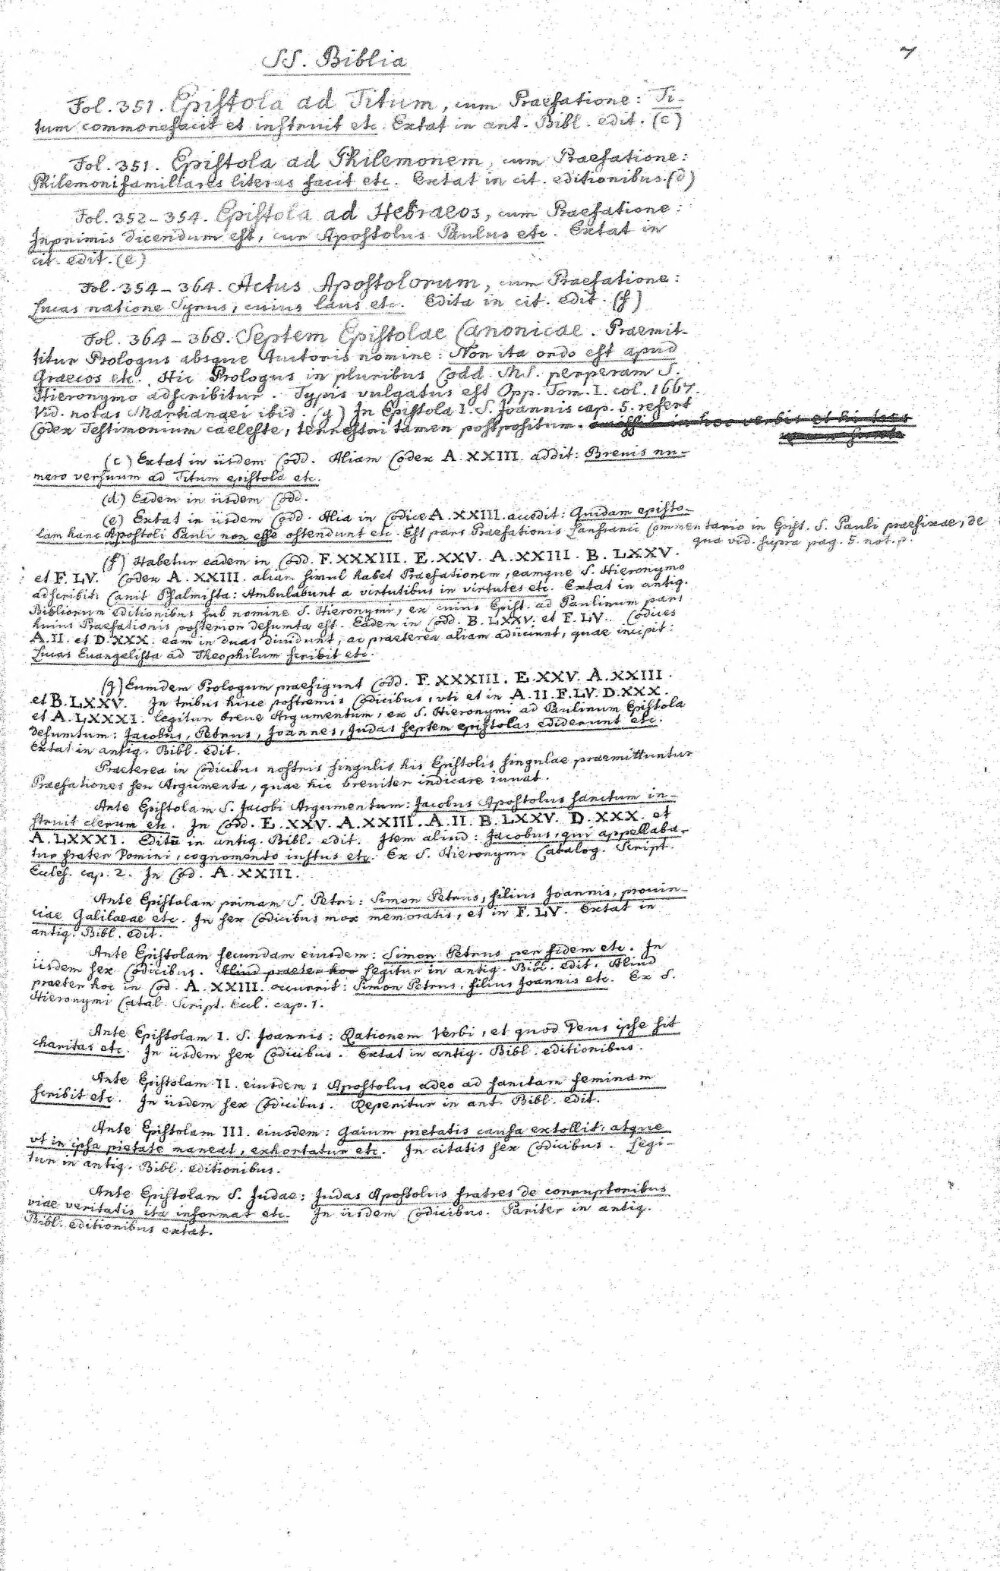 SS. Biblia
7
Fol. 351. Epistola ad Titum, cum Praefatione: Ti-
tum commonefacit et instruit etc. Extat in ant. Bibl. edit. (c)
Fol. 351. Epistola ad Philemonem, cum Praefatione:
Philemoni familiares literas facit etc. Extat in cit. editionibus. (d)
Fol. 352-354. Epistola ad Hebraeos, cum Praefatione:
Inprimis dicendum est, cur Apostolus Paulus etc. Extat in
cit. edit. (e)
Fol. 354-364. Actus Apostolorum, cum Praefatione:
Lucas natione Syrus, cuius laus etc. Edita in cit. edit. (f)
Fol. 364-368. Septem Epistolae Canonicae. Praemit-
titur Prologus absque Auctoris nomine: Non ita ordo est apud
Graecos etc. Hic Prologus in pluribus Codd. MS. perperam S.
Hieronymo adscribitur. Typis vulgatus est Opp. Tom. I. col. 1667.
Vid. notas Martianaei ibid. (g) In Epistola I. S. Joannis cap. 5. refert
Codex Testimonium caeleste, terrestri tamen postpositum.
(c) Extat in iisdem Codd. Aliam Codex A. XXIII. addit: Brevis nu-
mero versuum ad Titum epistola etc.
(d) Eadem in iisdem Codd.
(e) Extat in iisdem Codd. Alia in Codice A. XXIII. accedit: Quidam episto-
lam hanc Apostoli Pauli non esse ostendunt etc. Est pars Praefationis Lanfranci Commentario in Epist. S. Pauli praefixae, de
qua vid. supra pag. 5. not. p.
(f) Habetur eadem in Codd. F. XXXIII. E. XXV. A. XXIII. B. LXXV.
et F. LV. Codex A. XXIII. aliam simul habet Praefationem, eamque S. Hieronymo
adscribit: Canit Psalmista: Ambulabunt a virtutibus in virtutes etc. Extat in antiq.
Bibliorum editionibus sub nomine S. Hieronymi, ex cuius Epist. ad Paulinum pars
huius Praefationis posterior desumta est. Eadem in Codd. B. LXXV. et F. LV. Codices
A. II. et D. XXX. eam in duas dividunt, ac praeterea aliam adiiciunt, quae incipit:
Lucas Evangelista ad Theophilum scribit etc.
(g) Eumdem Prologum praefigunt Codd. F. XXXIII. E. XXV. A. XXIII.
et B. LXXV. In tribus hisce postremis Codicibus, uti et in A. II. F. LV. D. XXX.
et A. LXXXI. legitur breve Argumentum, ex S. Hieronymi ad Paulinum Epistola
desumtum: Jacobus, Petrus, Joannes, Judas septem epistolas ediderunt etc.
Extat in antiq. Bibl. edit.
Praeterea in Codicibus nostris singulis his Epistolis singulae praemittuntur
Praefationes seu Argumenta, quae hic breviter indicare iuvat.
Ante Epistolam S. Jacobi Argumentum: Jacobus Apostolus sanctum in-
struit clerum etc. In Codd. E. XXV. A. XXIII. A. II. B. LXXV. D. XXX. et
A. LXXXI. Editum in antiq. Bibl. edit. Item aliud: Jacobus, qui appellaba-
tur frater Domini, cognomento iustus etc. Ex S. Hieronymi Catalog. Script.
Eccles. cap. 2. In Cod. A. XXIII.
Ante Epistolam primam S. Petri: Simon Petrus, filius Joannis, provin-
ciae Galilaeae etc. In sex Codicibus mox memoratis, et in F. LV. Extat in
antiq. Bibl. edit.
Ante Epistolam secundam eiusdem: Simon Petrus per fidem etc. In
iisdem sex Codicibus. Aliud praeter hoc legitur in antiq. Bibl. edit. Aliud
praeter hoc in Cod. A. XXIII. occurrit: Simon Petrus, filius Joannis etc. Ex S.
Hieronymi Catal. Script. Eccl. cap. 1.
Ante Epistolam I. S. Joannis: Rationem Verbi, et quod Deus ipse sit
charitas etc. In iisdem sex Codicibus. Extat in antiq. Bibl. editionibus.
Ante Epistolam II. eiusdem: Apostolus adeo ad sanctam feminam
scribit etc. In iisdem sex Codicibus. Reperitur in ant. Bibl. edit.
Ante Epistolam III. eiusdem: Gaium pietatis causa extollit, atque
ut in ipsa pietate maneat, exhortatur etc. In citatis sex Codicibus. Legi-
tur in antiq. Bibl. editionibus.
Ante Epistolam S. Judae: Judas Apostolus fratres de corruptoribus
viae veritatis ita informat etc. In iisdem Codicibus. Pariter in antiq.
Bibl. editionibus extat.